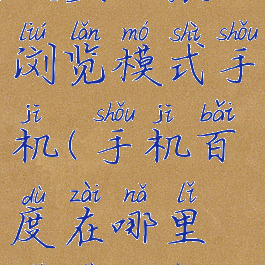 liú lǎn mó shì shǒu
浏览模式手
jī shǒu jī bǎi
机(手机百
dù zài nǎ lǐ
度在哪里